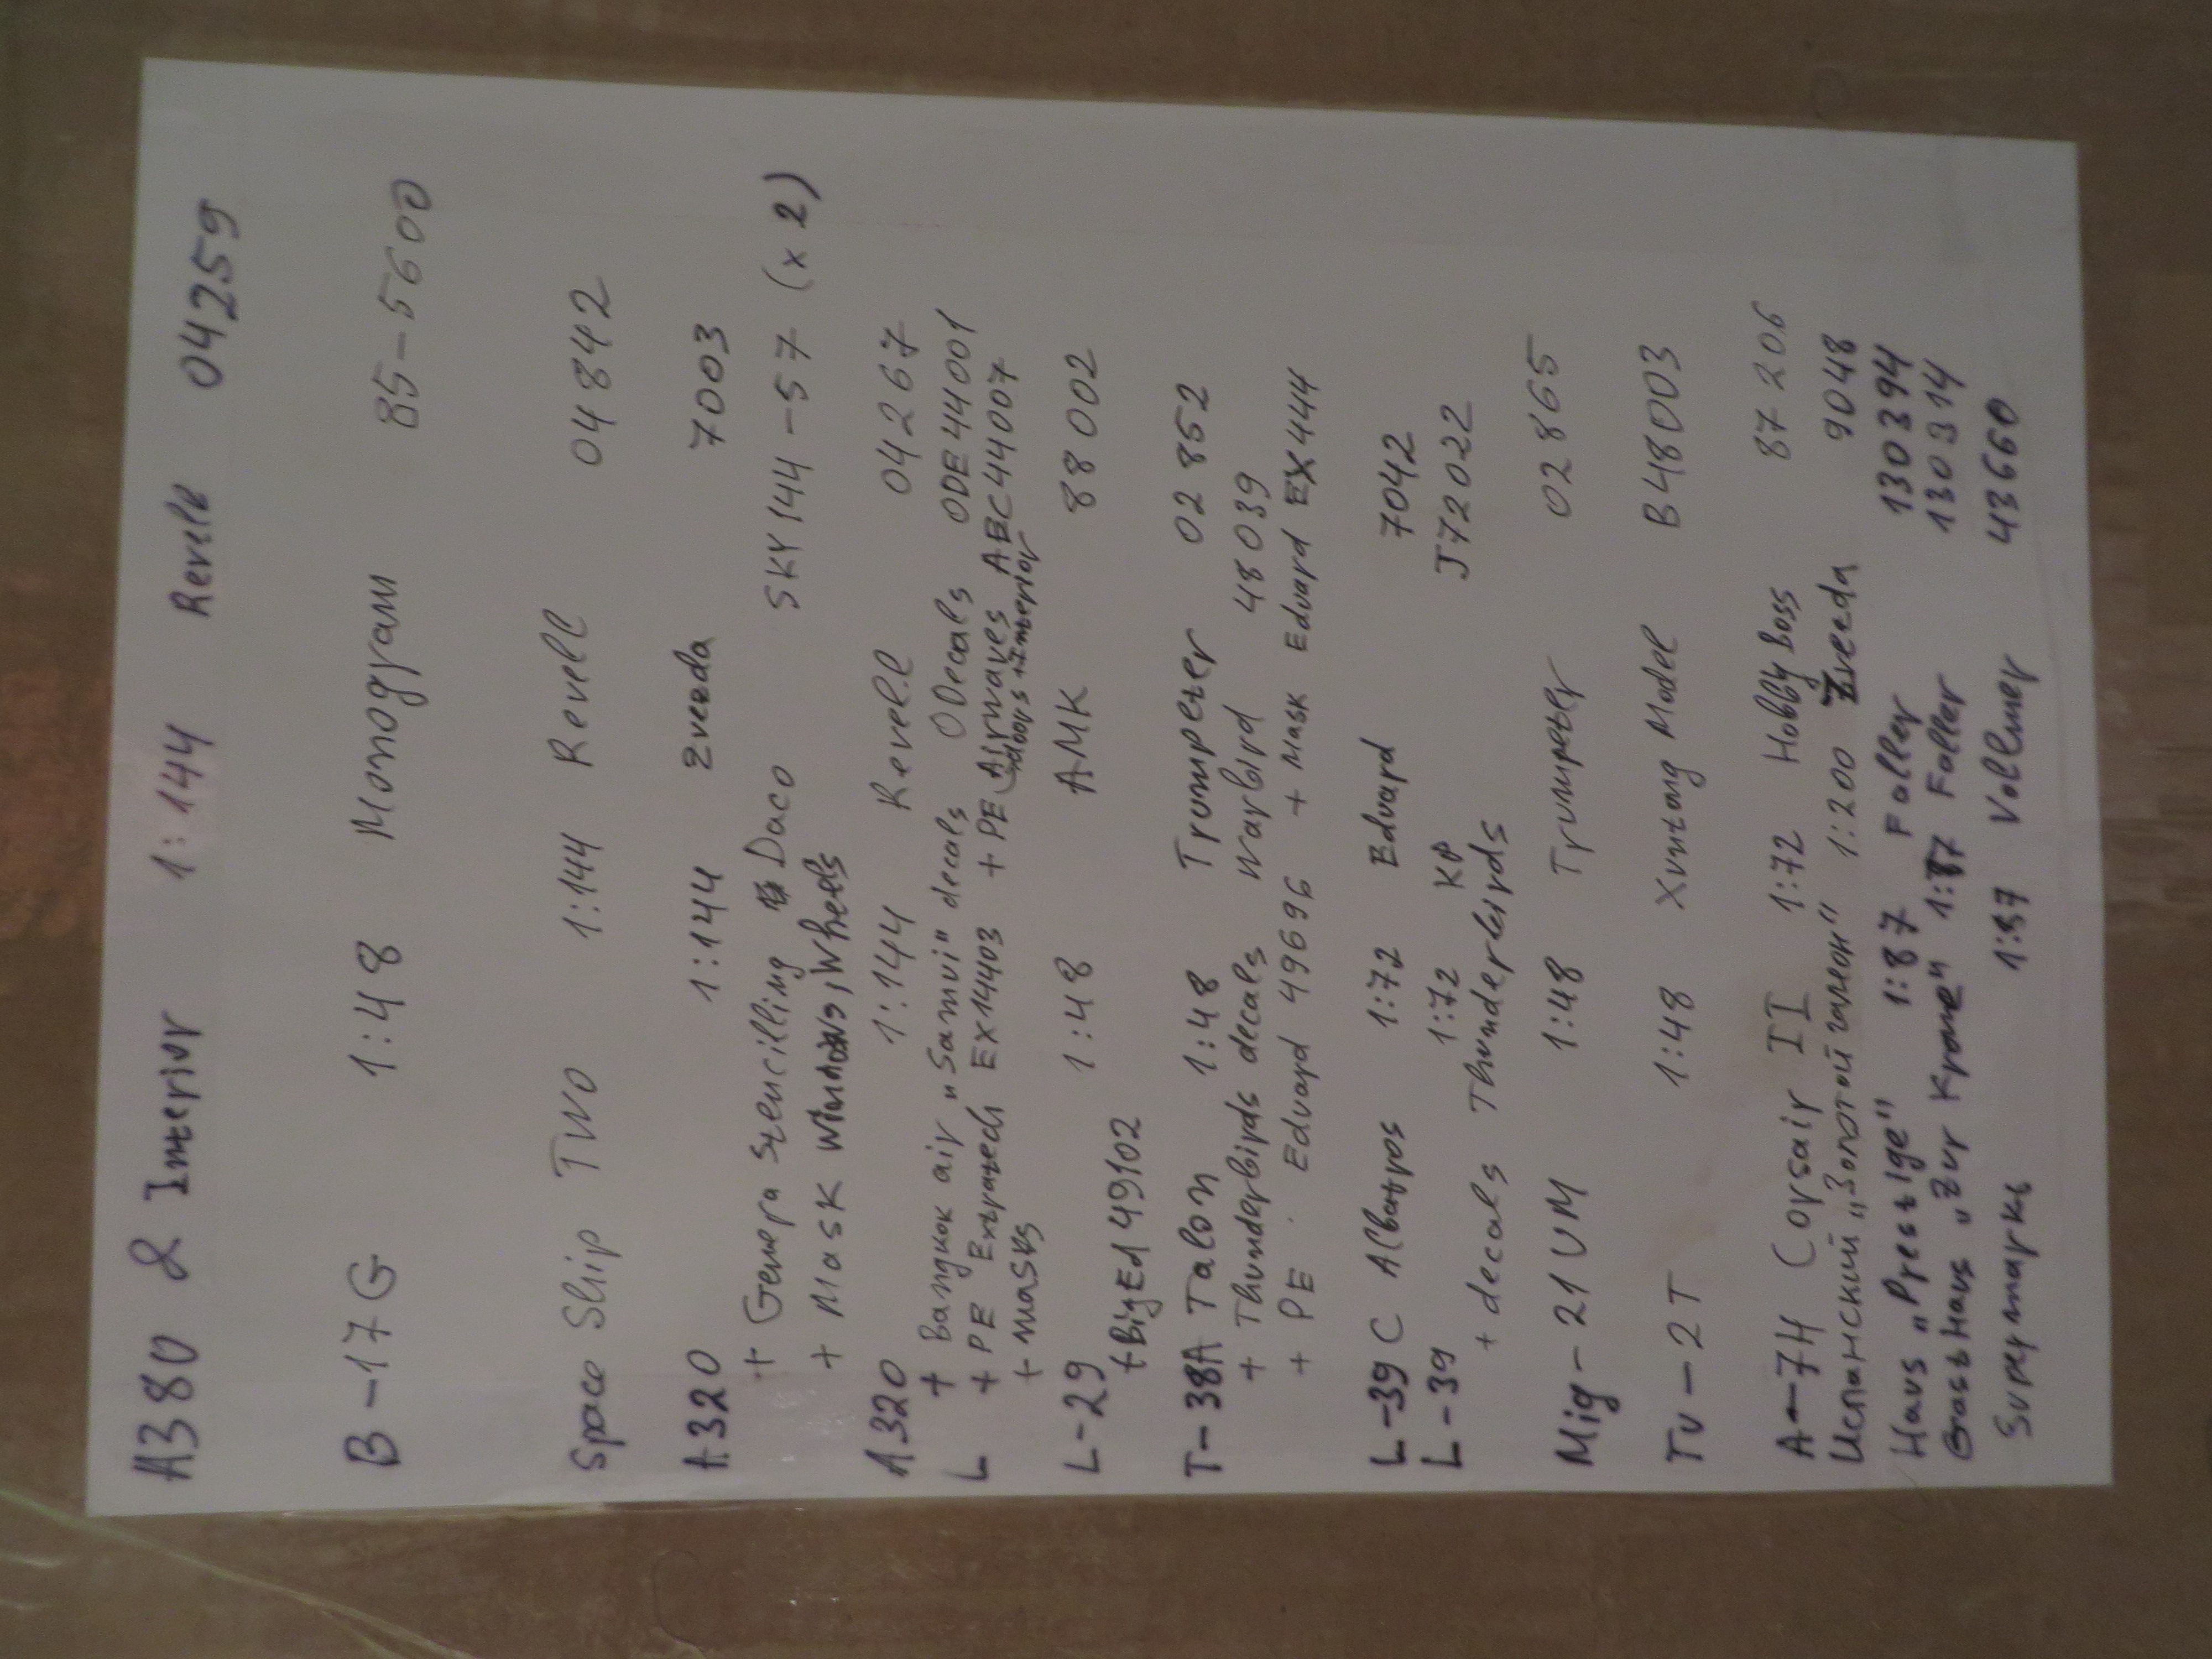 A380 & Interior 1:144 Revell 04259
B-17G 1:48 Monogram 85-5600
Space Ship Two 1:144 Revell 04842
A320 1:144 Zvezda 7003
+ Genera stencilling Daco SKY144-57 (x2)
+ Mask windows, wheels
A320 1:144 Revell 04267
+ Bangkok air "Samui" decals ODecals ODE44001
+ PE Extratech EX14403 + PE Airwaves AEC44007
+ masks doors + interior
L-29 1:48 AMK 88002
+ BigEd 49102
T-38A Talon 1:48 Trumpeter 02852
+ Thunderbirds decals Warbird 48039
+ PE. Eduard 49696 + Mask Eduard EX444
L-39C Albatros 1:72 Eduard 7042
L-39 1:72 KP J72022
+ decals Thunderbirds
Mig-21UM 1:48 Trumpeter 02865
Tu-2T 1:48 Xuntong Model B48003
A-7H Corsair II 1:72 HobbyBoss 87206
Испанский „Золотой галеон" 1:200 Zvezda 9048
Haus „Prestige" 1:87 Faller 130394
Gasthaus „Zur Krone" 1:87 Faller 130314
Supermarkt 1:87 Vollmer 43660